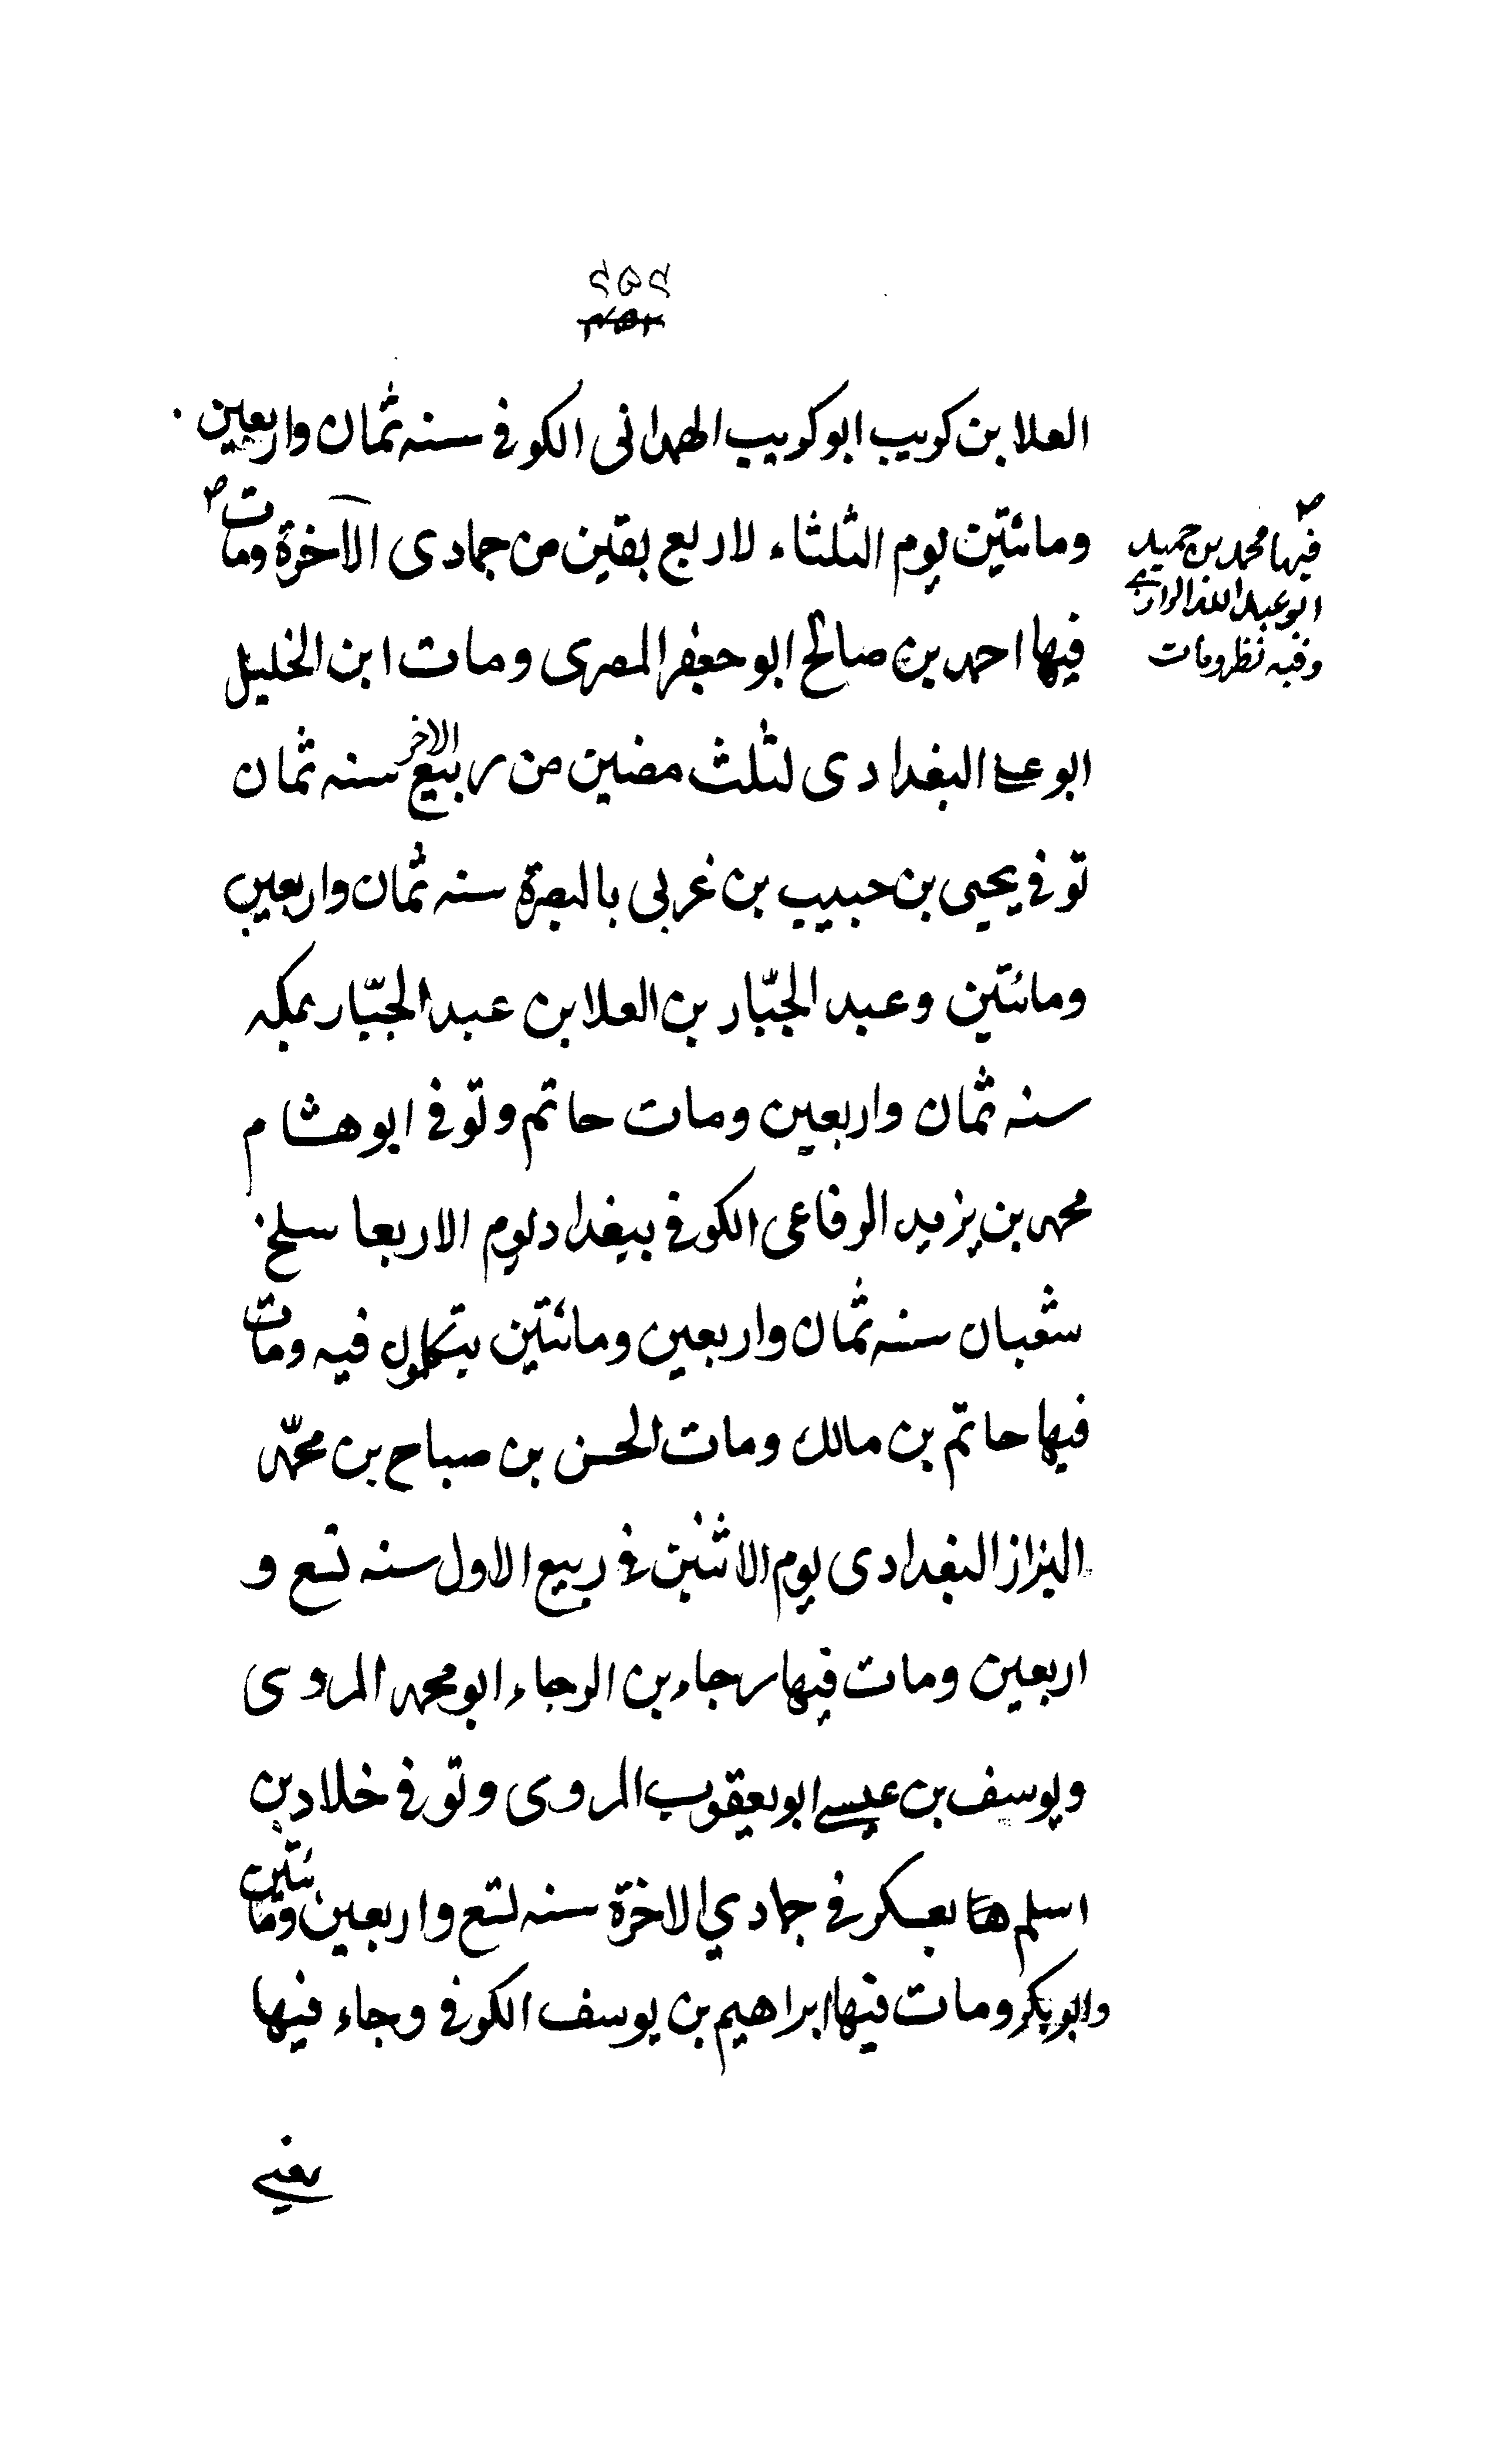 ٢٥٢
العلا بن كريب ابو كريب الهمدانى الكوفى سنه ثمان واربعين
ومائتين يوم الثلثاء لاربع بقين من جمادى الآخرة ومات
فيها محمد بن حميد
ابو عبد الله الرازى
وفيه نظر ومات
فيها احمد بن صالح ابو جعفر المصرى ومات ابن الخليل
ابو على البغدادى لثلث مضين من ربيع الاخر سنه ثمان
توفى يحيى بن حبيب بن عربى بالبصرة سنه ثمان واربعين
ومائتين وعبد الجبّار بن العلا بن عبد الجبّار بمكه
سنه ثمان واربعين ومات حاتم وتوفى ابو هشام
محمد بن يزيد الرفاعى الكوفى ببغداد يوم الاربعا سلخ
شعبان سنه ثمان واربعين ومائتين يتكلمون فيه ومات
فيها حاتم بن مالك ومات الحسن بن صباح بن محمّد
البزاز البغدادى يوم الاثنين فى ربيع الاول سنه تسع و
اربعين ومات فيها رجاء بن الرجاء ابو محمد المروى
ويوسف بن عيسى ابو يعقوب المروى وتوفى خلاد بن
اسلم بعسكر فى جمادي الاخرة سنه تسع واربعين ومائتين
وابو بكر ومات فيها ابراهيم بن يوسف الكوفى وجاء فيها
يعنى